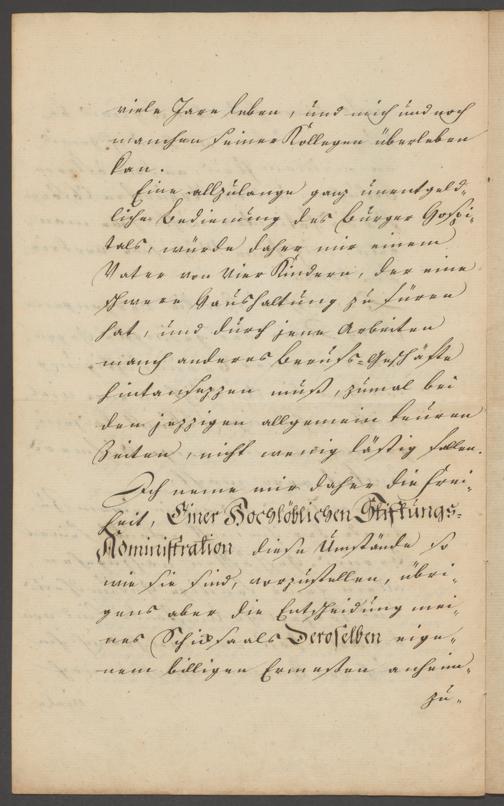 viele Jare leben, und mich und noch
manchen seiner Kollegen überleben
kan.
Eine allzulange ganz unentgeld-
liche Bedienung des Bürger Hospi-
tals, würde daher mir einem
Vater von vier Kindern, der eine
schwere Haushaltung zu füren
hat, und durch jene Arbeiten
manch anderes Berufs-Geschäfte
hintansezzen muß, zumal bei
den jezzigen allgemein teuren
Zeiten, nicht wenig lästig fallen.
Ich neme mir daher die Frei-
heit, Einer Hochlöblichen Stiftungs-
Administration diese Umstände so
wie sie sind, vorzustellen, übri-
gens aber die Entscheidung mei-
nes Schiksaals Deroselben eige-
nem billigen Ermessen anheim-
zu-